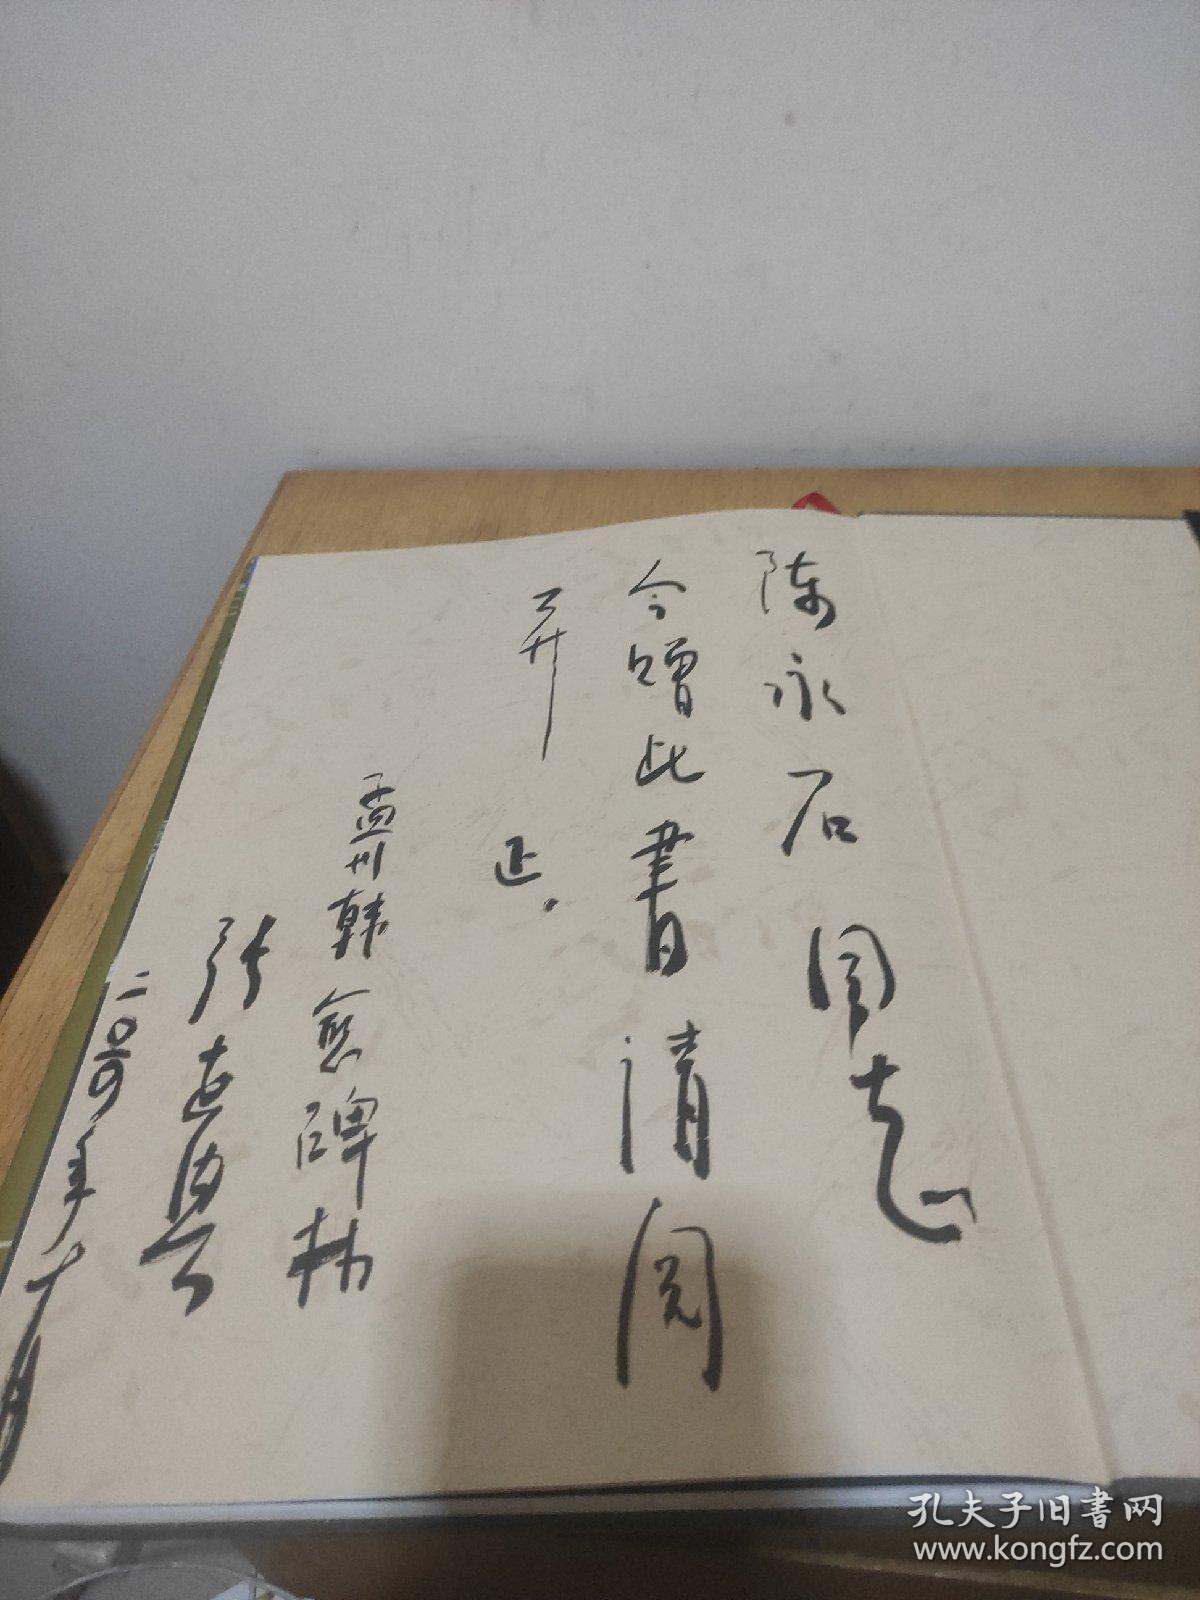 陈永石同志
今赠此书请阅
并
正.
孟州韩愈碑林
张
年十月
孔夫子旧书网
www.kongfz.com